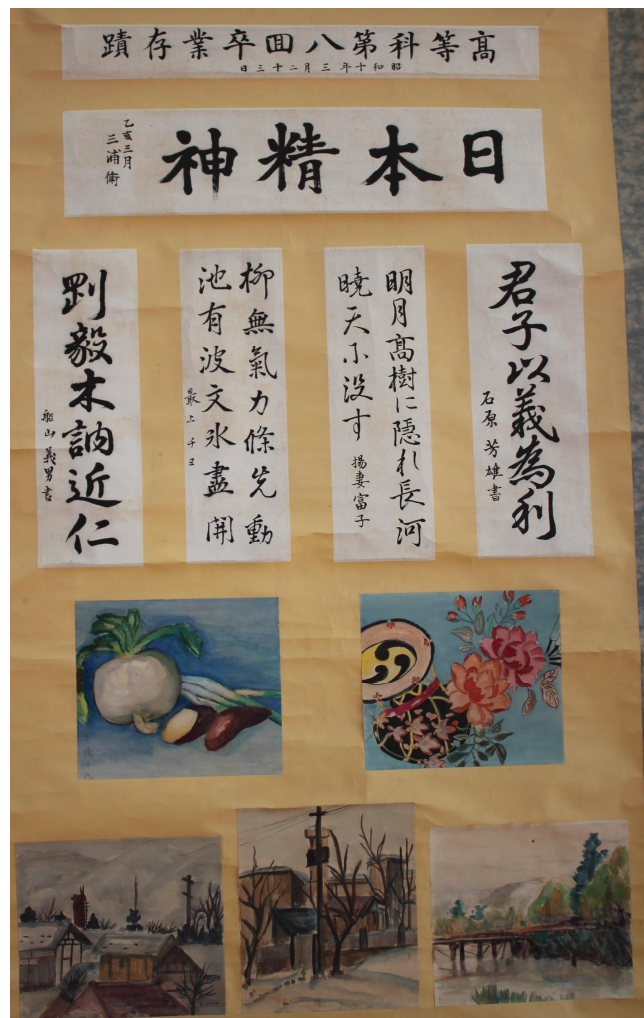 髙等科第八囬卒業存蹟
昭和十年三月二十三日
日本精神
乙亥三月
三浦衛
君子以義為利
石原芳雄書
明月髙樹に隠れ長河
暁天に没す
揚妻富子
柳無氣力條先動
池有波文氷盡開
最上千ヨ
剛毅木訥近仁
船山義男書